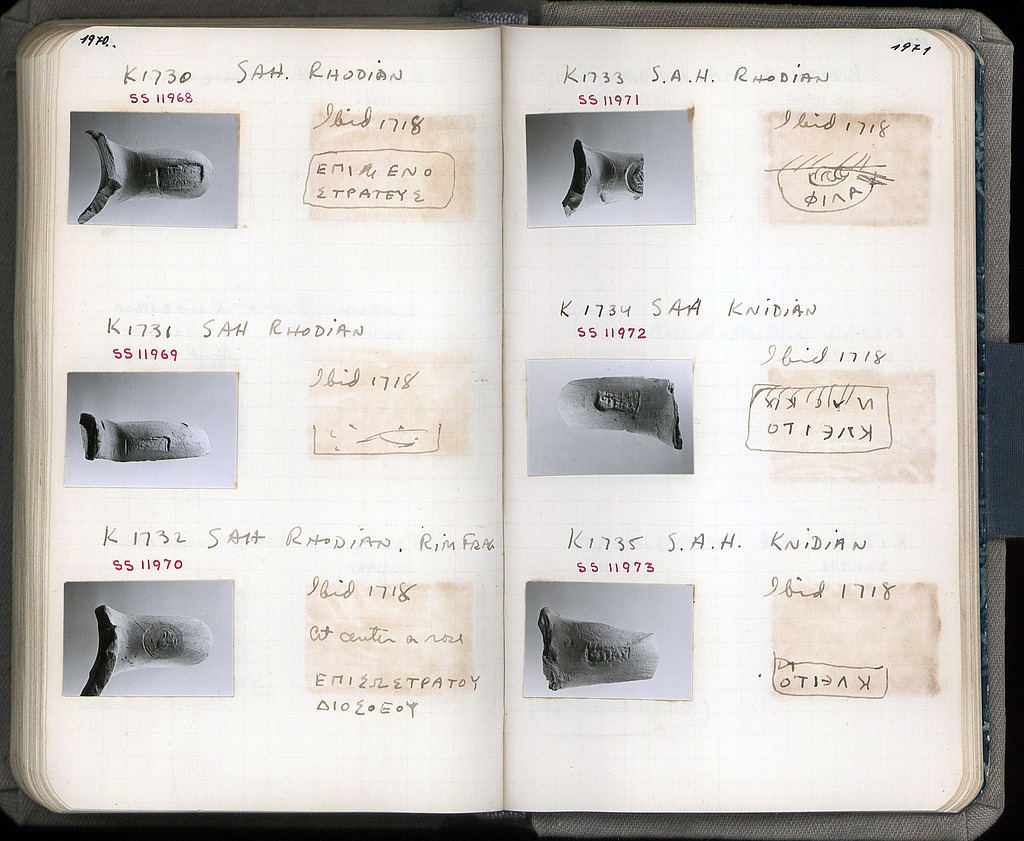 1970.
K1730 SAH. RHODIAN
SS 11968
Ibid 1718
ΕΠΙ ΜΕΝΟ
ΣΤΡΑΤΕΥΣ
K1731 SAH RHODIAN
SS 11969
Ibid 1718
K 1732 SAH RHODIAN. RIM FRAG
SS 11970
Ibid 1718
At center a rose
ΕΠΙΣΩΣΤΡΑΤΟΥ
ΔΙΟΣΘΕΟΥ
1971
K1733 S.A.H. RHODIAN
SS 11971
Ibid 1718
ΦΙΛΑ
K 1734 SAH KNIDIAN
SS 11972
Ibid 1718
ΚΛΕΙΤΟ
K1735 S.A.H. KNIDIAN
SS 11973
Ibid 1718
ΚΛΕΙΤΟ